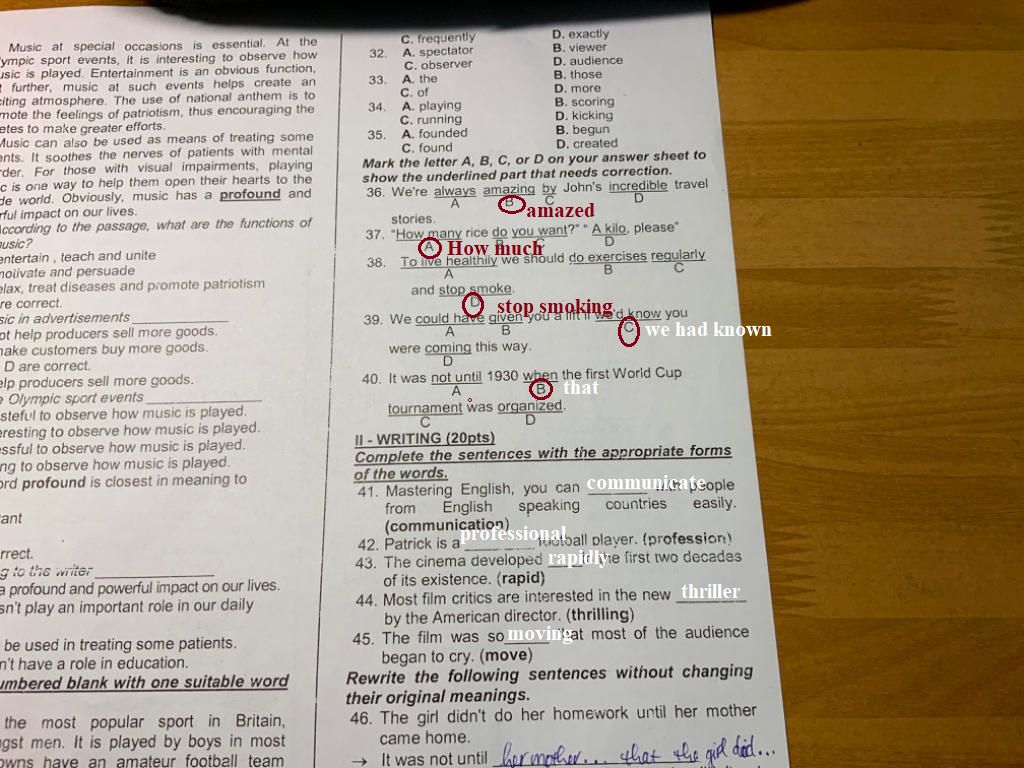 Music at special occasions is essential. At the
lympic sport events, it is interesting to observe how
usic is played. Entertainment is an obvious function,
further, music at such events helps create an
citing atmosphere. The use of national anthem is to
mote the feelings of patriotism, thus encouraging the
etes to make greater efforts.
Music can also be used as means of treating some
ents. It soothes the nerves of patients with mental
rder. For those with visual impairments, playing
c is one way to help them open their hearts to the
de world. Obviously, music has a profound and
rful impact on our lives.
According to the passage, what are the functions of
usic?
entertain , teach and unite
motivate and persuade
elax, treat diseases and promote patriotism
re correct.
sic in advertisements
ot help producers sell more goods.
make customers buy more goods.
D are correct.
elp producers sell more goods.
e Olympic sport events
steful to observe how music is played.
eresting to observe how music is played.
essful to observe how music is played.
ng to observe how music is played.
ord profound is closest in meaning to
ant
rrect.
g to the writer
a profound and powerful impact on our lives.
sn't play an important role in our daily
be used in treating some patients.
n't have a role in education.
umbered blank with one suitable word
the most popular sport in Britain,
ngst men. It is played by boys in most
owns have an amateur football team
C. frequently D. exactly
32. A. spectator B. viewer
C. observer D. audience
33. A. the B. those
C. of D. more
34. A. playing B. scoring
C. running D. kicking
35. A. founded B. begun
C. found D. created
Mark the letter A, B, C, or D on your answer sheet to
show the underlined part that needs correction.
36. We're always amazing by John's incredible travel
A B C D
amazed
stories.
37. "How many rice do you want?" " A kilo, please"
A B C D
How much
38. To live healthily we should do exercises regularly
A B C
and stop smoke.
D stop smoking
39. We could have given you a lift if we'd know you
A B C we had known
were coming this way.
D
40. It was not until 1930 when the first World Cup
A B that
tournament was organized.
C D
II - WRITING (20pts)
Complete the sentences with the appropriate forms
of the words.
41. Mastering English, you can communicate with people
from English speaking countries easily.
(communication)
42. Patrick is a professional football player. (profession)
43. The cinema developed rapidly in the first two decades
of its existence. (rapid)
44. Most film critics are interested in the new thriller
by the American director. (thrilling)
45. The film was so moving that most of the audience
began to cry. (move)
Rewrite the following sentences without changing
their original meanings.
46. The girl didn't do her homework until her mother
came home.
→ It was not until her mother... that the girl did...